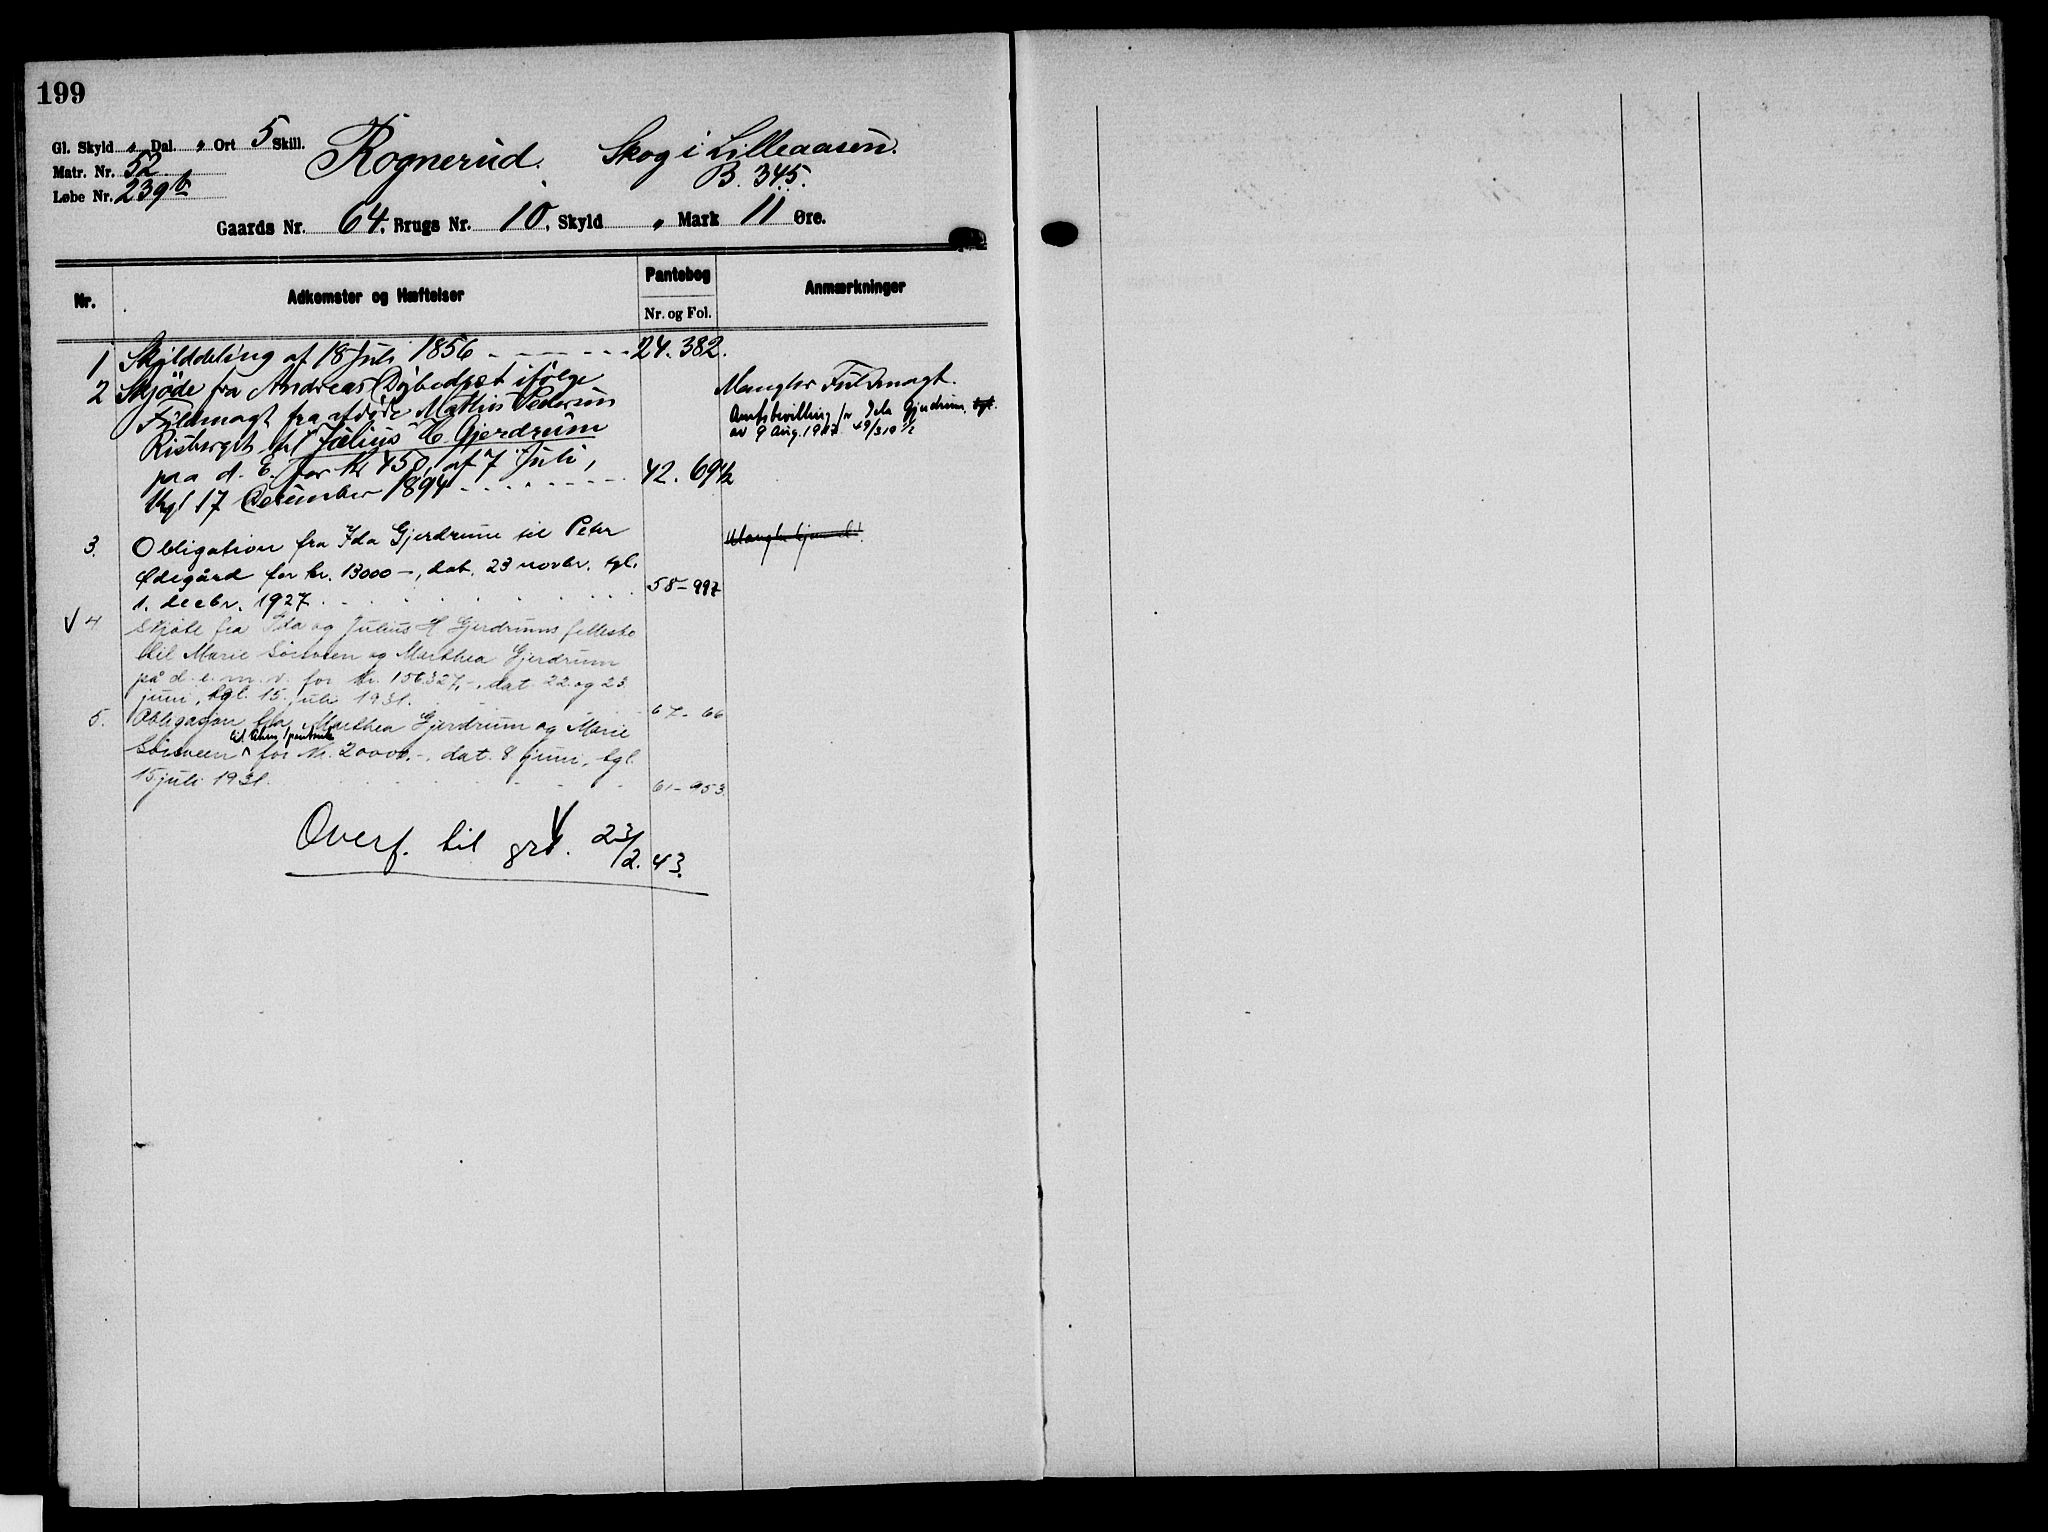 199
Gl. Skyld " Dal. " Ort 5 Skill.
Matr. Nr. 52
Løbe Nr. 239b
Rognerud. Skog i Lilleaasen.
B. 345.
Gaards Nr. 64, Brugs Nr. 10, Skyld " Mark 11 Øre.
Nr. Adkomster og Hæftelser Pantebog Anmærkninger
Nr. og Fol.
1 Skylddeling af 18 Juli 1856 - - - - - - 24. 382.
2 Skjøde fra Andreas ifølge
Fuldmagt fra afdøde Mathis Pedersen
Risberget til Julius H. Gjerdrum
paa d. E. for Kr 450, af 7 Juli,
thgl 17 December 1894 - - - - - - 42. 694/2
Mangler Fuldmagt.
Amtsbevilling for Ida Gjerdrum, tgl.
av 9 Aug. 1917 49/310 1/2
3. Obligation fra Ida Gjerdrum til Peter
Ødegård for kr. 13000 -, dat. 23 novbr. tgl.
1. decbr. 1927 . . . . . . 58 - 997
Mangler hjemmel.
√ 4 Skjøte fra Ida og Julius H Gjerdrums fellesbo
til Marie Sørsveen og Marthea Gjerdrum
på d. e. m. v. for kr. 156327,-, dat. 22 og 23
juni, tgl. 15. juli 1931. 67 - 66
5. Obligasjon fra Marthea Gjerdrum og Marie
Sørsveen til for kr. 20000.-, dat. 8 juni, tgl.
15 juli 1931. 61 - 953.
Overf. til grb. 23/2. 43.